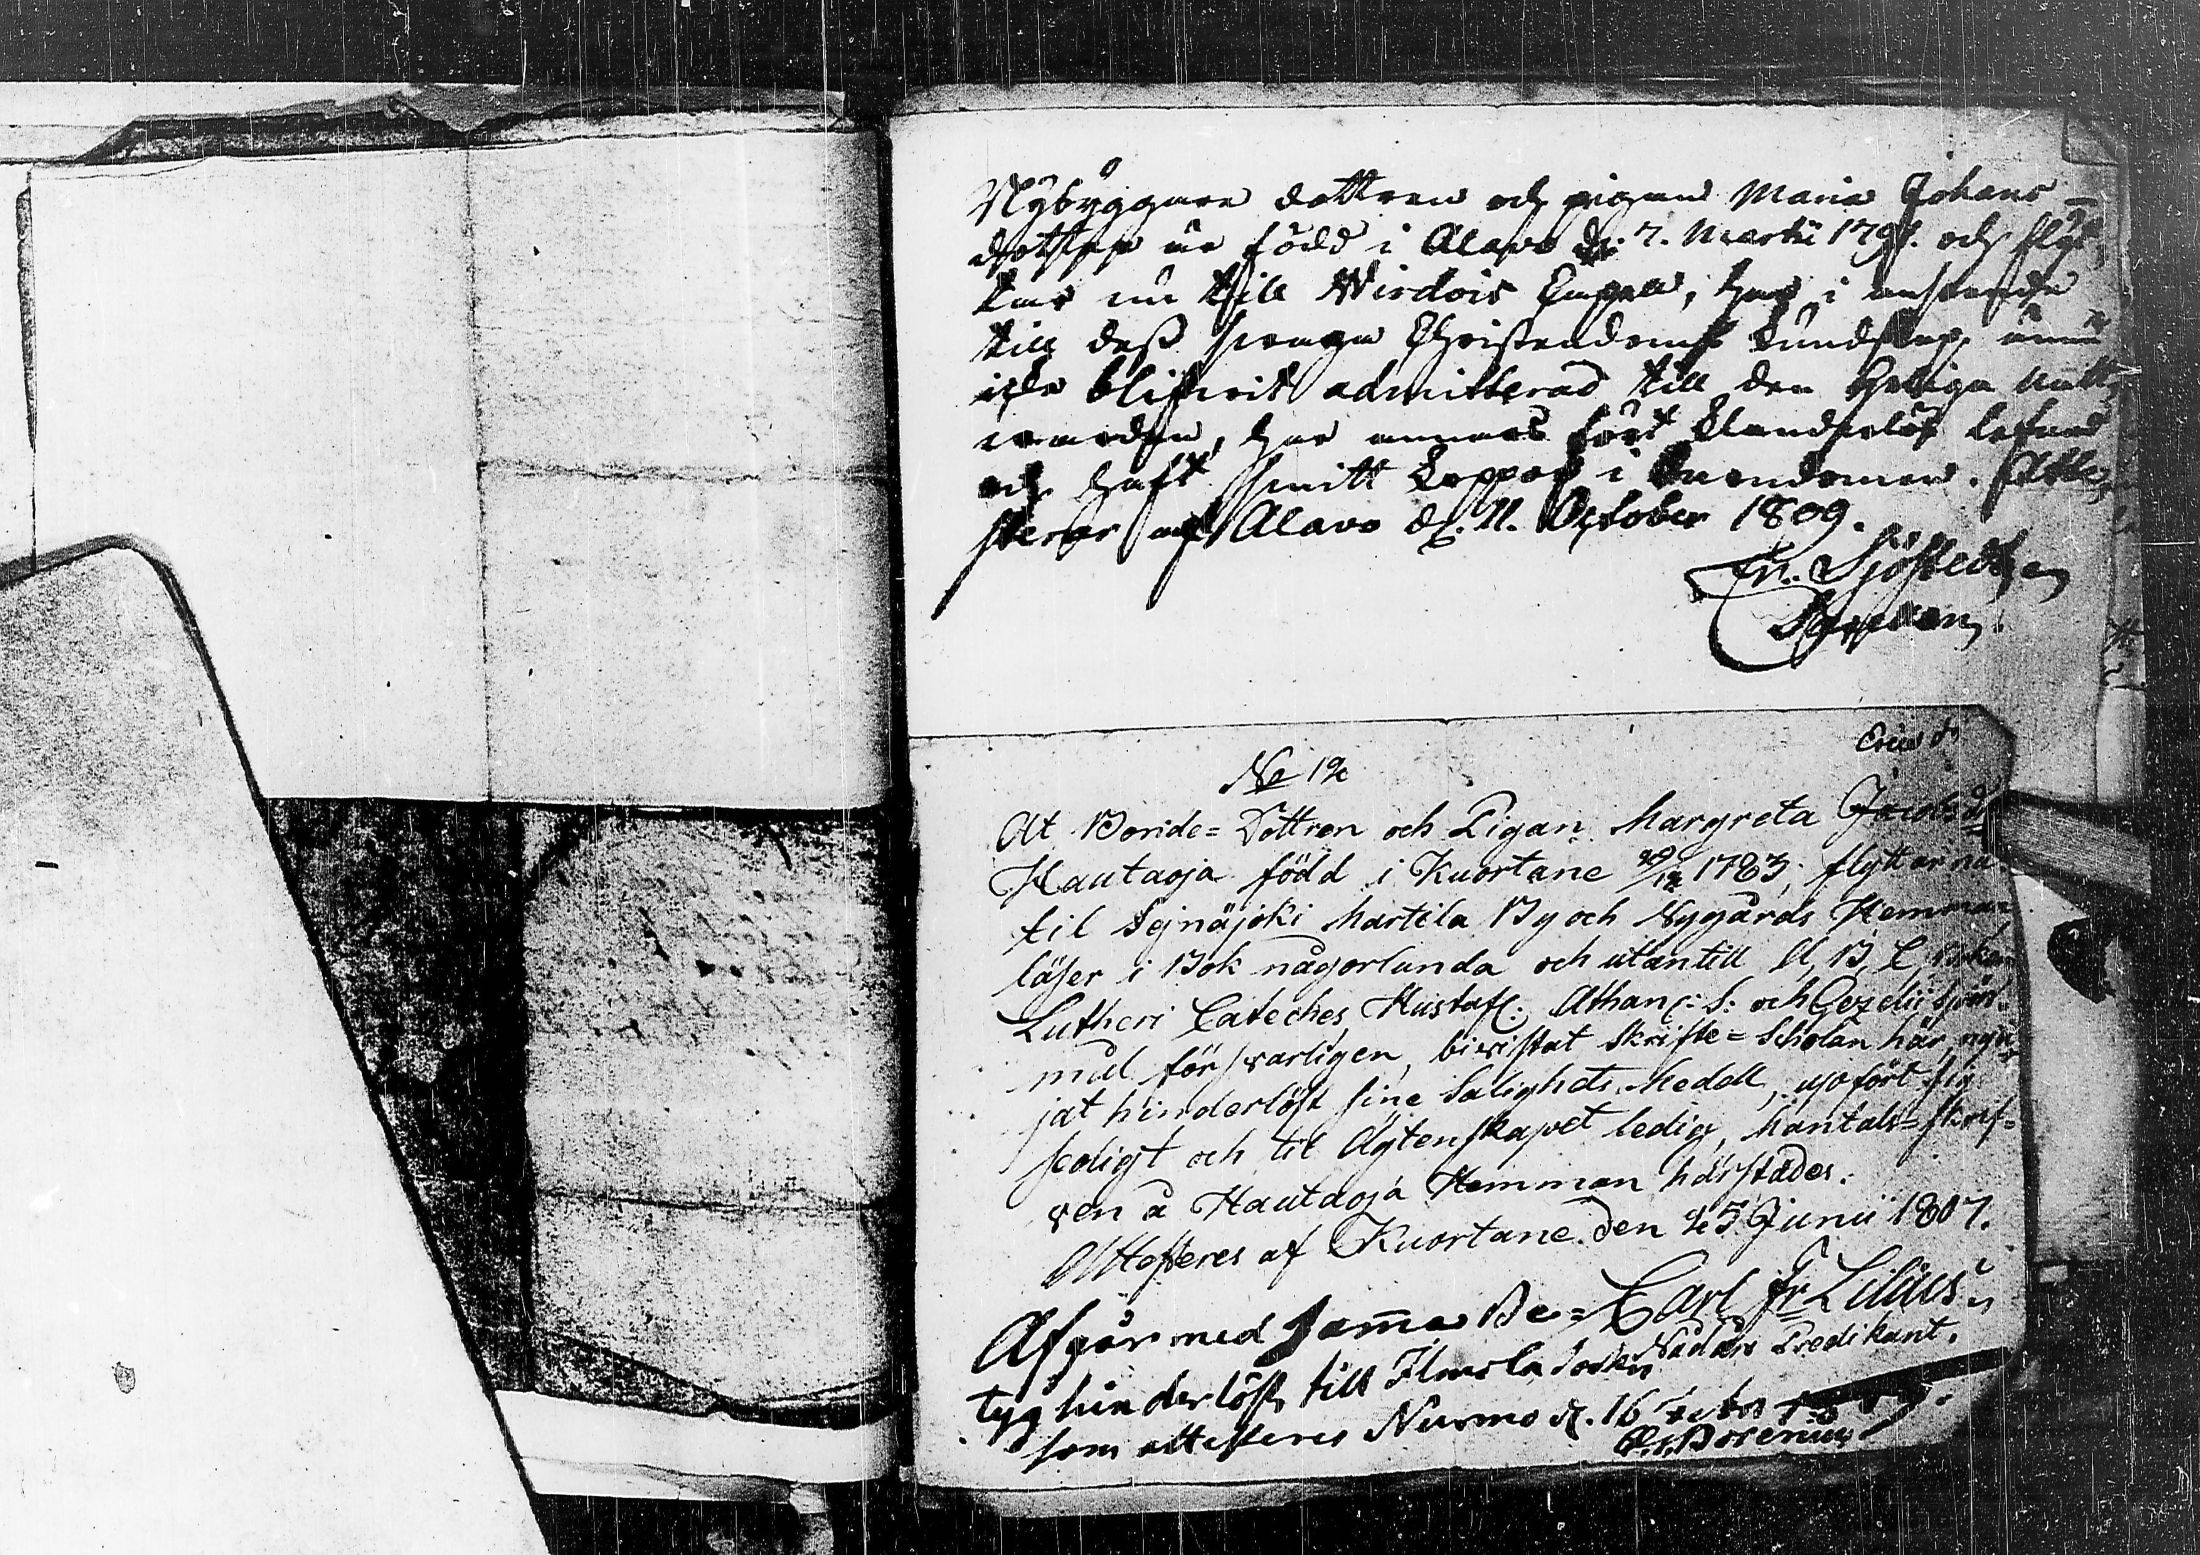 Nybyggare dottren och pigan Maria Johans-
dotter är född i Alavo d. 7. Martii 1791. och flyt-
tar nu till Wirdois Capell, har i anseende
till dess swaga Christendoms kundskap ännu
icke blifwit admitterad till den Heliga natt-
warden, har annars fört klanderlös lefnad
och haft smitt koppor i barndomen. Atte-
sterar af Alavo d. 11. October 1809.
Fr. Sjöstedt
No 12
At Bonde-Dottren och Pigan Margreta Jacobsd
Hautaoja född i Kuortane 1783, flyttar nu
til Sejnäjoki Martila By och Nygårds Hemman
läser i Bok någorlunda och utantill A, B, C, Boken
Lutheri Cateches, Hustafl: Athan: S: och Gezelii Spörs-
mål försvarligen, biwistat Skrifte-Scholan här, nyt-
jat hinderlöst sine Salighets Medell, upfört sig
sedigt och til Ägtenskapet ledig, Mantals-skrif-
ven å Hautaoja Hemman härstädes.
Attesteres af Kuortane den 25 Junii 1807.
Carl Fr Lilius
Nådårs Predikant.
Afgår med samma Be-
tyg hinderlöst till Ilmola Sokn
som attesteres Nurmo d. 16
Borenius